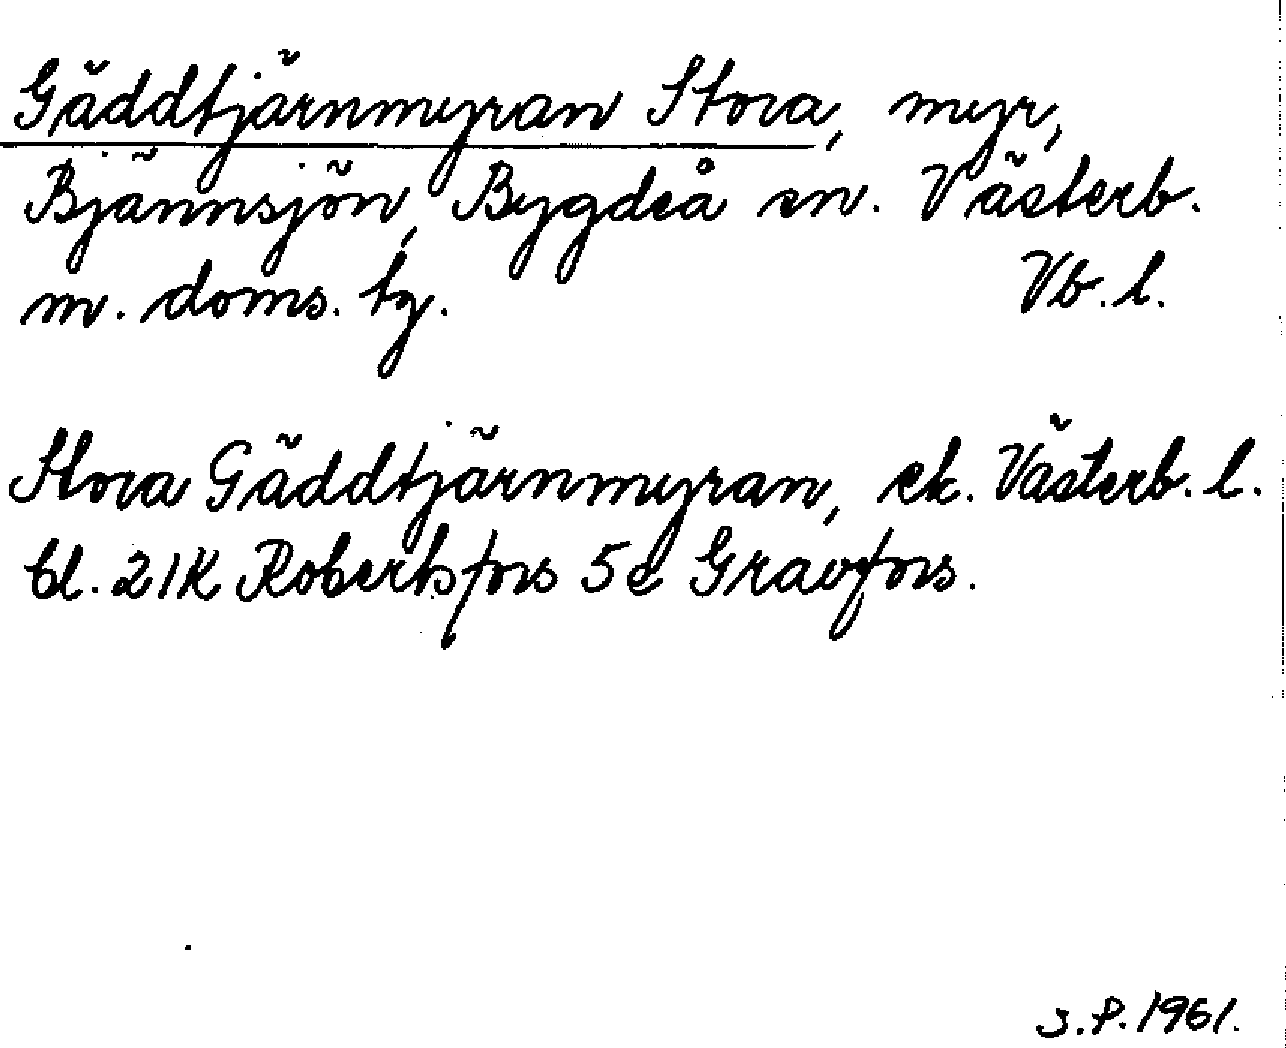 Gäddtjärnmyran Stora, myr,
Bjännsjön, Bygdeå sn. Västerb.
m. doms. tg. Vb. l.
Stora Gäddtjärnmyran, ek. Västerb. l.
bl. 21K Robertsfors 5c Gravfors.
J.P. 1961.